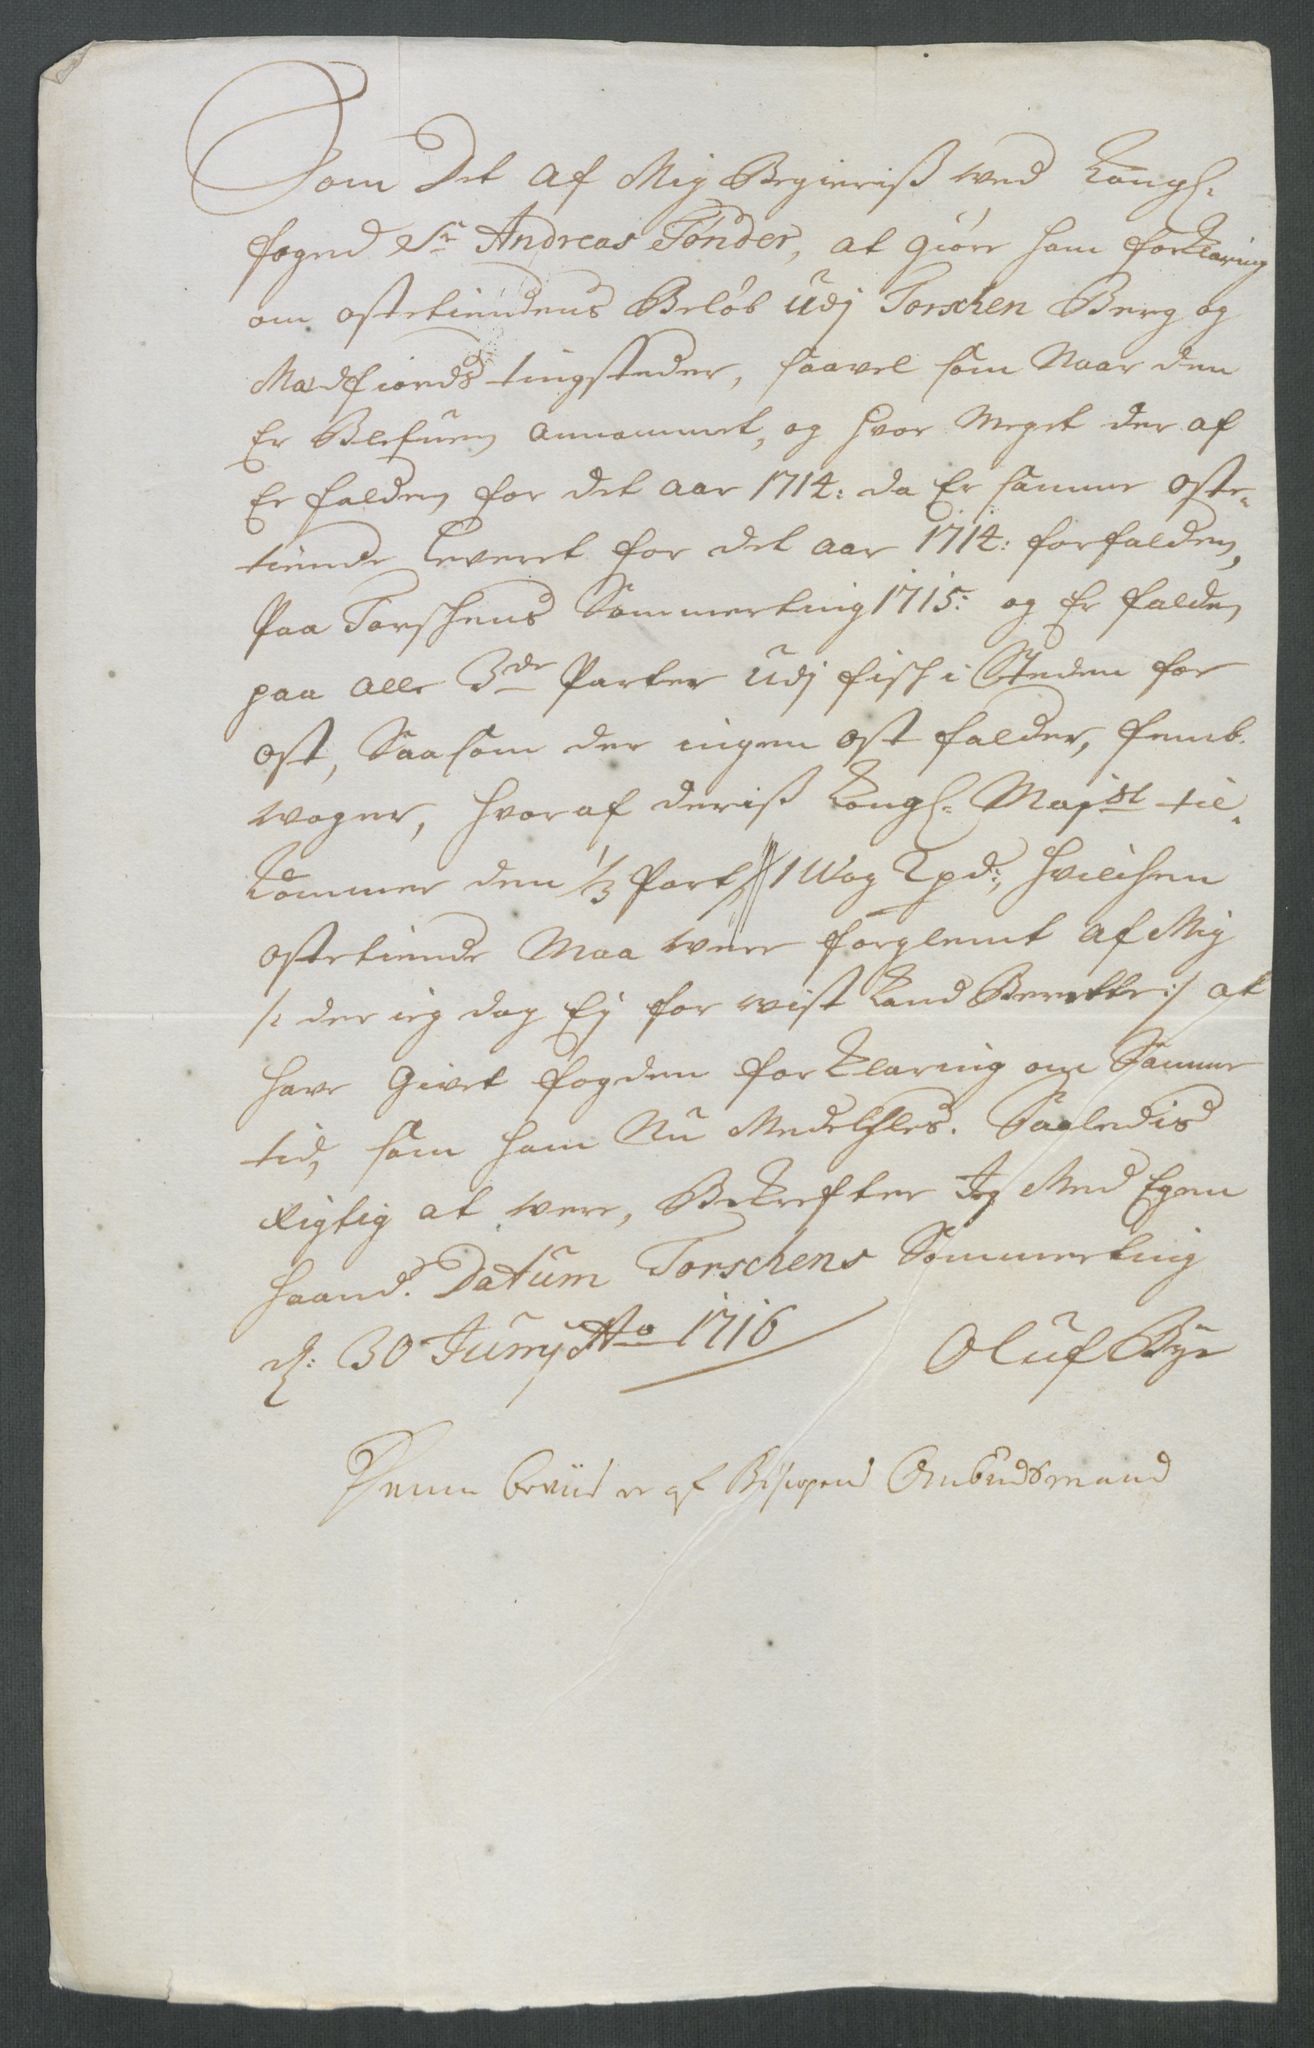 Som Det af Mig Begieriß ved Kongl:
foged Sr Andreas Tønder, at giøre ham forklaring
om ostetiendens Beløb udj Torschen Berg og
Medfiords tingsteder, saavel som Naar den
Er Blefuen annammet, og hvor Meget der af
Er falden for det aar 1714: da Er samme oste-
tiende leveret for det aar 1714: forfalden,
Paa Torschens Sommerting 1715: og Er falden
paa alle 3de Parter udj fisch i Steden for
ost, Saasom der ingen ost falder, femb
woger, hvoraf deriß Kongl: Majst til-
kommer den 1/3 Part 1 Wog 2 pd:, hvilchen
ostetiende Maa were forglemt af Mig
/: der ieg dog Ej for vist kand Berette :/ at
have Givet fogden forklaring om Samme
tid, som ham Nu Medelhles. Saaledis
Rigtig at were, Bekrefter Jeg Med Egen
haand. Datum Torschens Sommerting
d: 30 Junij Ao 1716
Oluf Bye
Denne beviis er af Bispens Ombudsmand